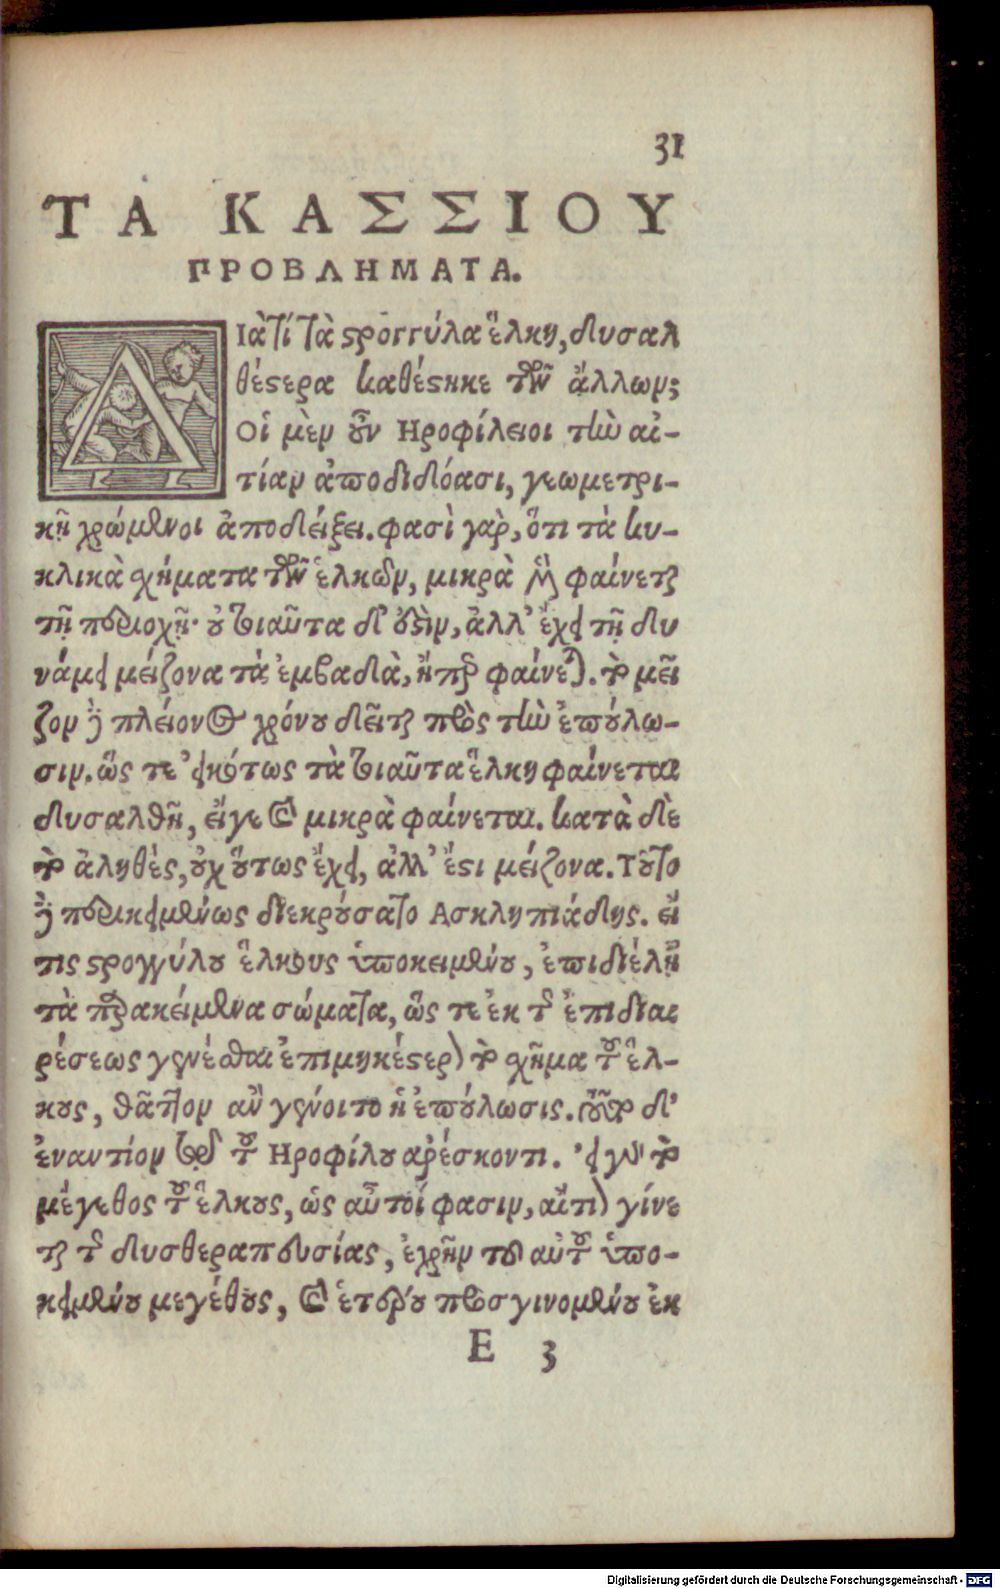 31
ΤΑ ΚΑΣΣΙΟΥ
ΠΡΟΒΛΗΜΑΤΑ.
ΔΙὰ τί τὰ στρογγύλα ἕλκη, δυσαλ
θέστερα καθέστηκε τῶν ἄλλων;
Οἱ μὲν οὖν Ηροφίλειοι τὴν αἰ-
τίαν ἀποδιδόασι, γεωμετρι-
κῇ χρώμενοι ἀποδείξει. φασὶ γὰρ, ὅτι τὰ κυ-
κλικὰ σχήματα τῶν ἑλκῶν, μικρὰ μὲν φαίνεται
τῇ περιοχῇ· οὐ τοιαῦτα δ' ἐστὶν, ἀλλ' ἔχει τῇ δυ
νάμει μείζονα τὰ ἐμβαδὰ, ἤπερ φαίνεται. τὸ μεῖ
ζον δὲ πλείονος χρόνου δεῖται πρὸς τὴν ἐπούλω-
σιν. ὥς τε εἰκότως τὰ τοιαῦτα ἕλκη φαίνεται
δυσαλθῆ, εἴγε καὶ μικρὰ φαίνεται. κατὰ δὲ
τὸ ἀληθὲς, οὐχ οὕτως ἔχει, ἀλλ' ἔστι μείζονα. Τοῦτο
δὲ περικειμένως διεκρούσατο Ασκληπιάδης. εἴ
τις στρογγύλου ἕλκους ὑποκειμένου, ἐπιδιέλῃ
τὰ παρακείμενα σώματα, ὥς τε ἐκ τῆς ἐπιδιαι
ρέσεως γενέσθαι ἐπιμηκέστερον τὸ σχῆμα τοῦ ἕλ-
κους, θᾶττον ἂν γένοιτο ἡ ἐπούλωσις. τοῦτο δ'
ἐναντίον τῷ τοῦ Ηροφίλου ἀρέσκοντι. εἰ γὰρ τὸ
μέγεθος τοῦ ἕλκους, ὡς αὐτοί φασιν, αἴτιον γίνε
ται τῆς δυσθεραπευσίας, ἐχρῆν τοῦ αὐτοῦ ὑπο-
κειμένου μεγέθους, καὶ ἑτέρου προσγινομένου ἐκ
E 3
Digitalisierung gefördert durch die Deutsche Forschungsgemeinschaft - DFG